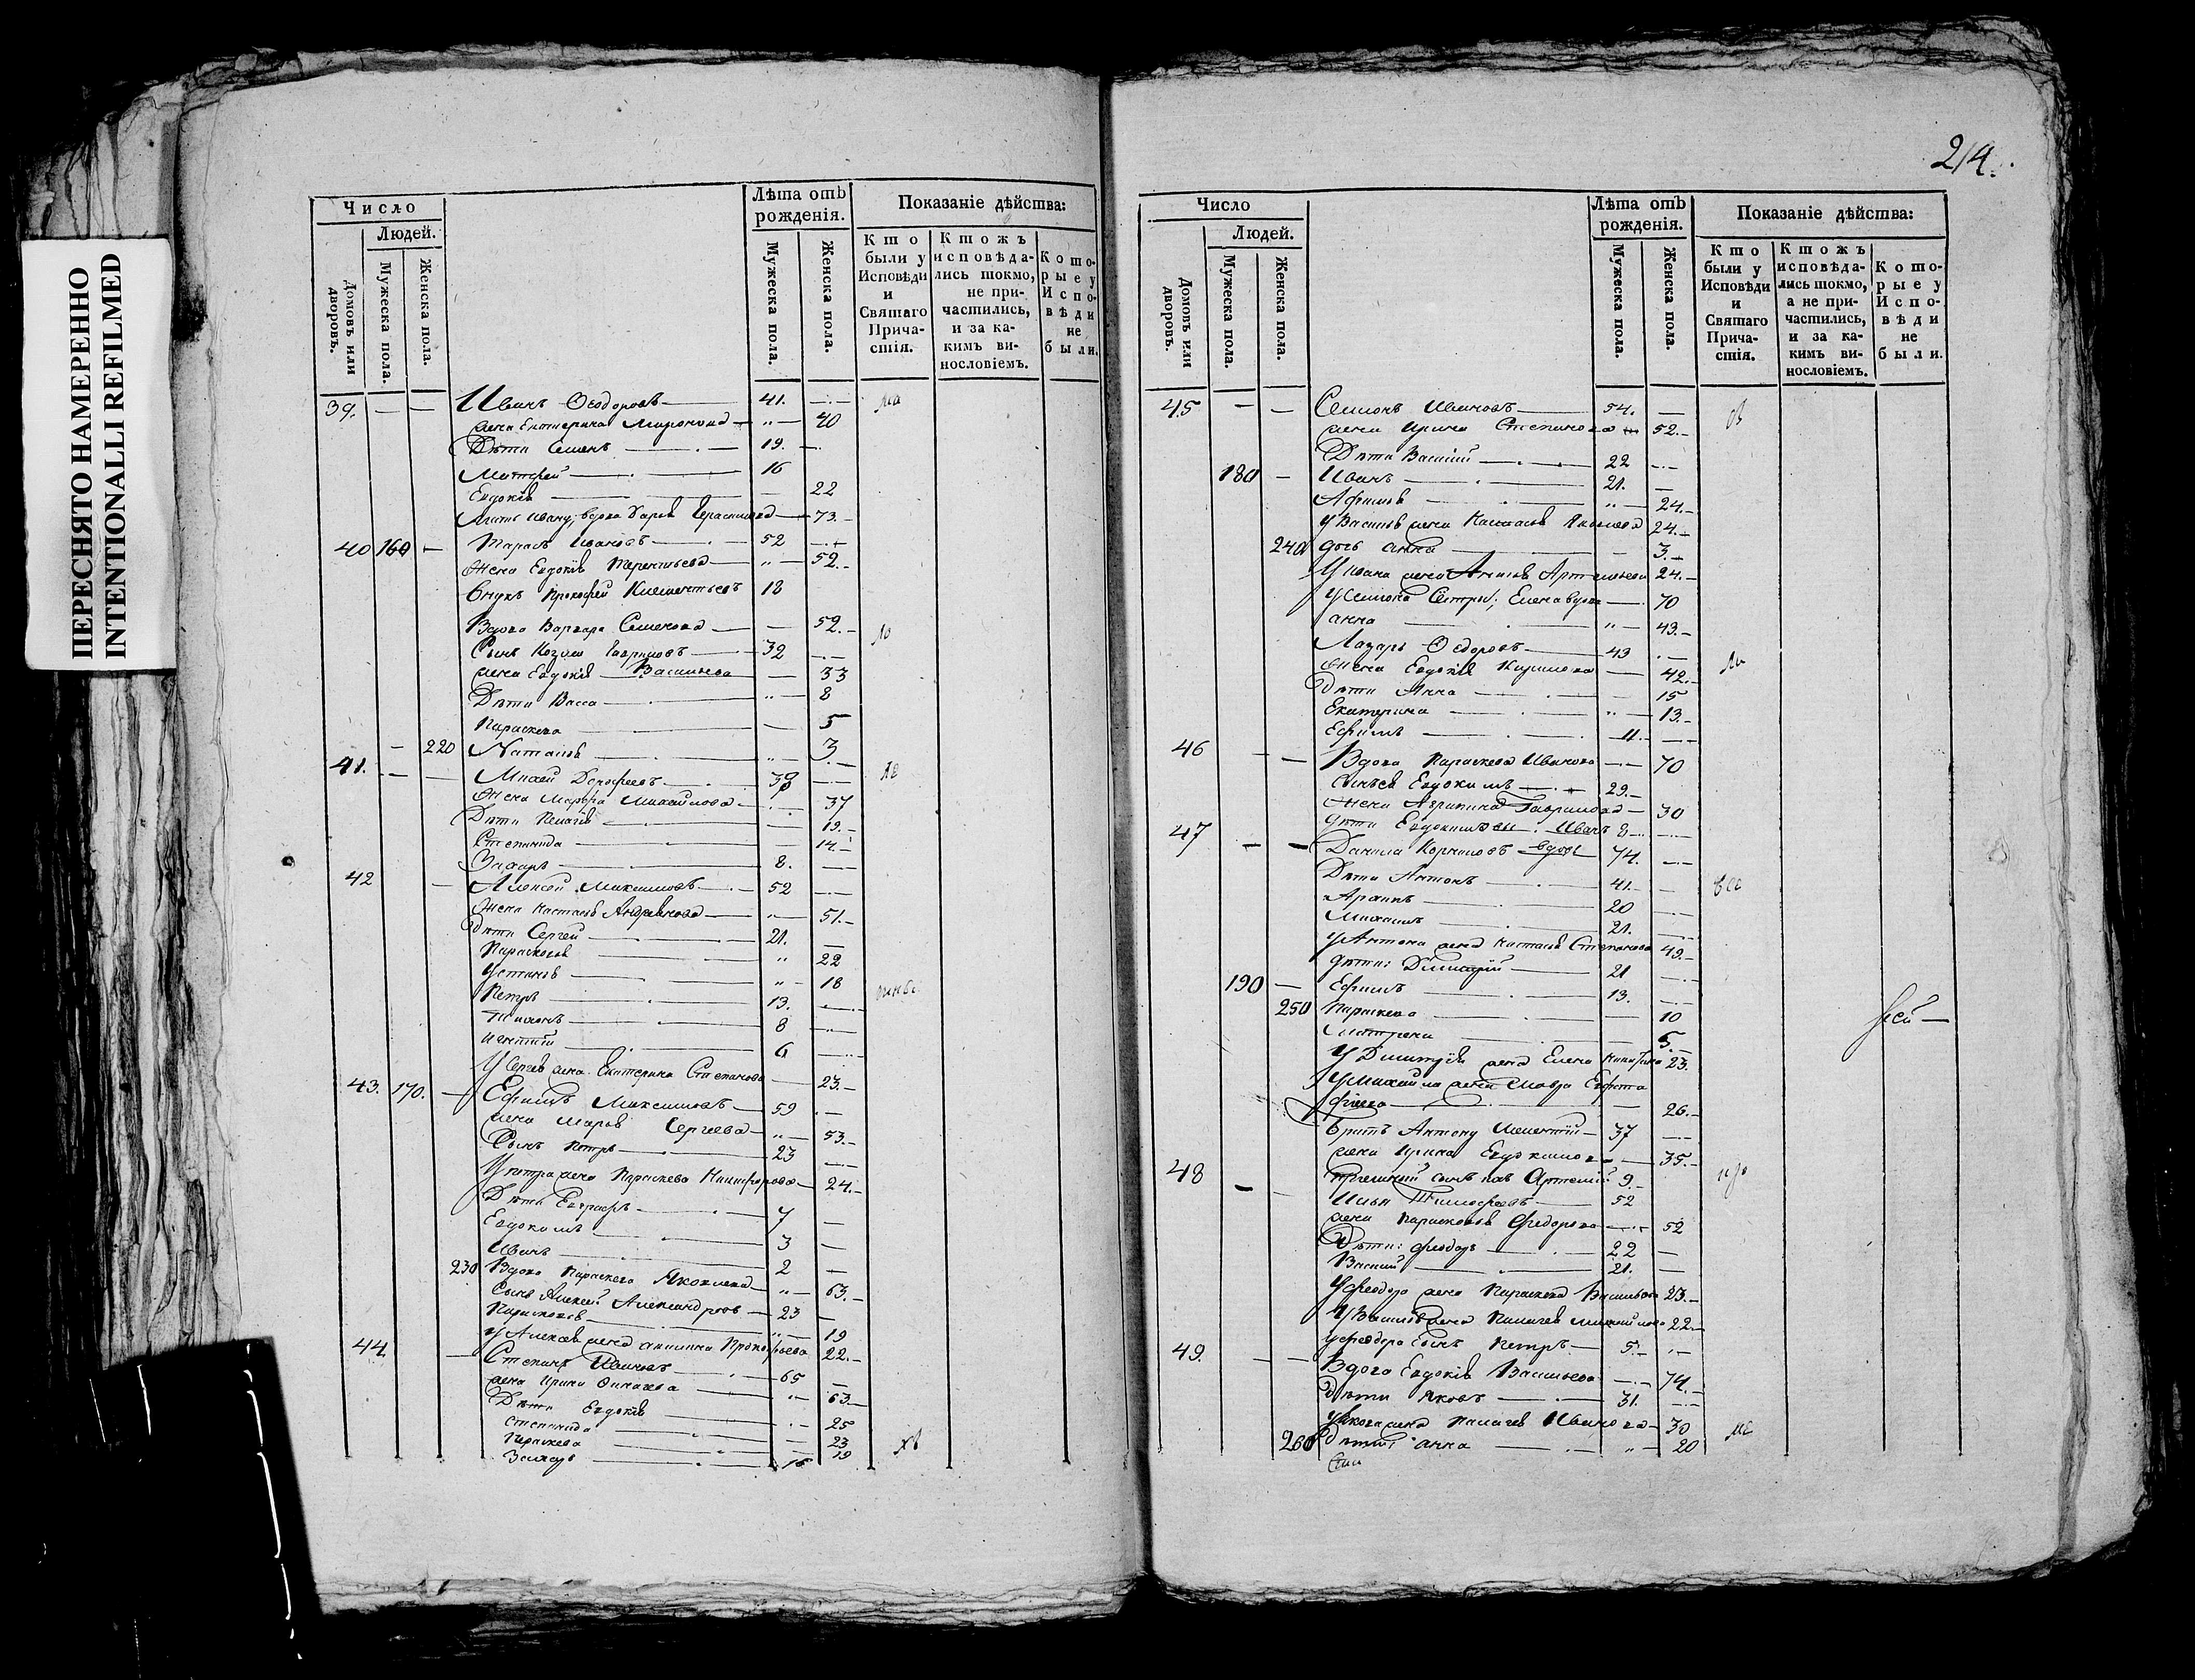 ПЕРЕСНЯТО НАМЕРЕННО
INTENTIONALLI REFILMED
214.
Число
Людей.
Домовъ или дворовъ.
Мужеска пола.
Женска пола.
Лѣта отъ рожденія.
Мужеска пола.
Женска пола.
Показаніе дѣйства:
Кто были у Исповѣди и Святаго Причастія.
Ктожъ исповѣдались токмо, не причастились, и за какимъ винословіемъ.
Которые у Исповѣди не были.
39. — — Иванъ Ѳеодоровъ 41.
жена Екатерина Миронова 40
Дѣти Семенъ 19.
Матфей 16
Евдокія 22
вдова Дарья Герасимова 73.
40 160 — Тарасъ Ивановъ 52
Жена Евдокія Терентьева 52.
Внукъ Прокофей Климентьевъ 18
Вдова Варвара Семенова 52.
Сынъ Козма Гавриловъ 32
жена Евдокія Васильева 33
Дѣти Васса 8
Параскева 5
— 220 Наталія 3
41. — — Михей Дорофеевъ 39
Жена Марфа Михайлова 37
Дѣти Пелагія 19.
Степанида 14.
Захаръ 8.
42 — Алексей Максимовъ 52
Жена Настасья Андреянова 51.
Дѣти Сергей 21.
Параскева 22
Устинья 18
Петръ 13.
Тихонъ 8
Игнатій 6
У Сергея жена Екатерина Степанова 23.
43. 170. — Ефимъ Максимовъ 59
жена Марья Сергеева 53.
Сынъ Петръ 23
У Петра жена Параскева Никифорова 24.
Дѣти Евграфъ 7
Евдокимъ 3
Иванъ 2
230 Вдова Параскева Яковлева 63.
Сынъ Алексей Александровъ 23
Параскева 19
У Алексея жена Акилина Прокофьева 22.
44. — Степанъ Ивановъ 65
жена Ирина 63
Дѣти Евдокія 25
Степанида 23
Параскева 19
Захаръ 16
Число
Людей.
Домовъ или дворовъ.
Мужеска пола.
Женска пола.
Лѣта отъ рожденія.
Мужеска пола.
Женска пола.
Показаніе дѣйства:
Кто были у Исповѣди и Святаго Причастія.
Ктожъ исповѣдались токмо, а не причастились, и за какимъ винословіемъ.
Которые у Исповѣди не были.
45 — — Семионъ Ивановъ 54.
жена Ирина Степанова 52.
Дѣти Василій 22
180 — Иванъ 21.
24.
У Василья жена Настасья Яковлева 24.
240 дочь Анна 3.
У Ивана жена Артемьева 24.
У Семиона Сестры; Елена вдова 70
Анна 43.
Лазарь Ѳедоровъ 43
Жена Евдокія Кирилова 42.
Дѣти Анна 15
Екатерина 13.
Ефимъ 11.
46 — — Вдова Параскева Иванова 70
Сынъ Евдокимъ 29.
Жена Агрипина Гаврилова 30
Дѣти Евдокимовы: Иванъ 8
47 — — Данила Корниловъ вдовъ 74.
Дѣти Антонъ 41.
Архипъ 20
Михаилъ 21.
У Антона жена Настасья Степанова 49.
дѣти: Димитрій 21
190 — Ефимъ 13.
250 Параскева 10
Матрена 5.
У Димитрія жена Елена 23.
У Михайла жена Мавра
26.
братъ Антону 37
жена Ирина Евдокимова 35.
48 — сынъ Артемій 9.
Илья Тимофеевъ 52
жена Параскева Федорова 52
Дѣти: Феодоръ 22
Василій 21.
У Феодора жена Параскева Васильева 23.
У Василья жена Пелагея Михайлова 22.
У Феодора сынъ Петръ 5.
49. — — Вдова Евдокія Васильева 74.
Дѣти Яковъ 31.
У Якова жена Пелагея Иванова 30
260 Дѣти: Анна 20